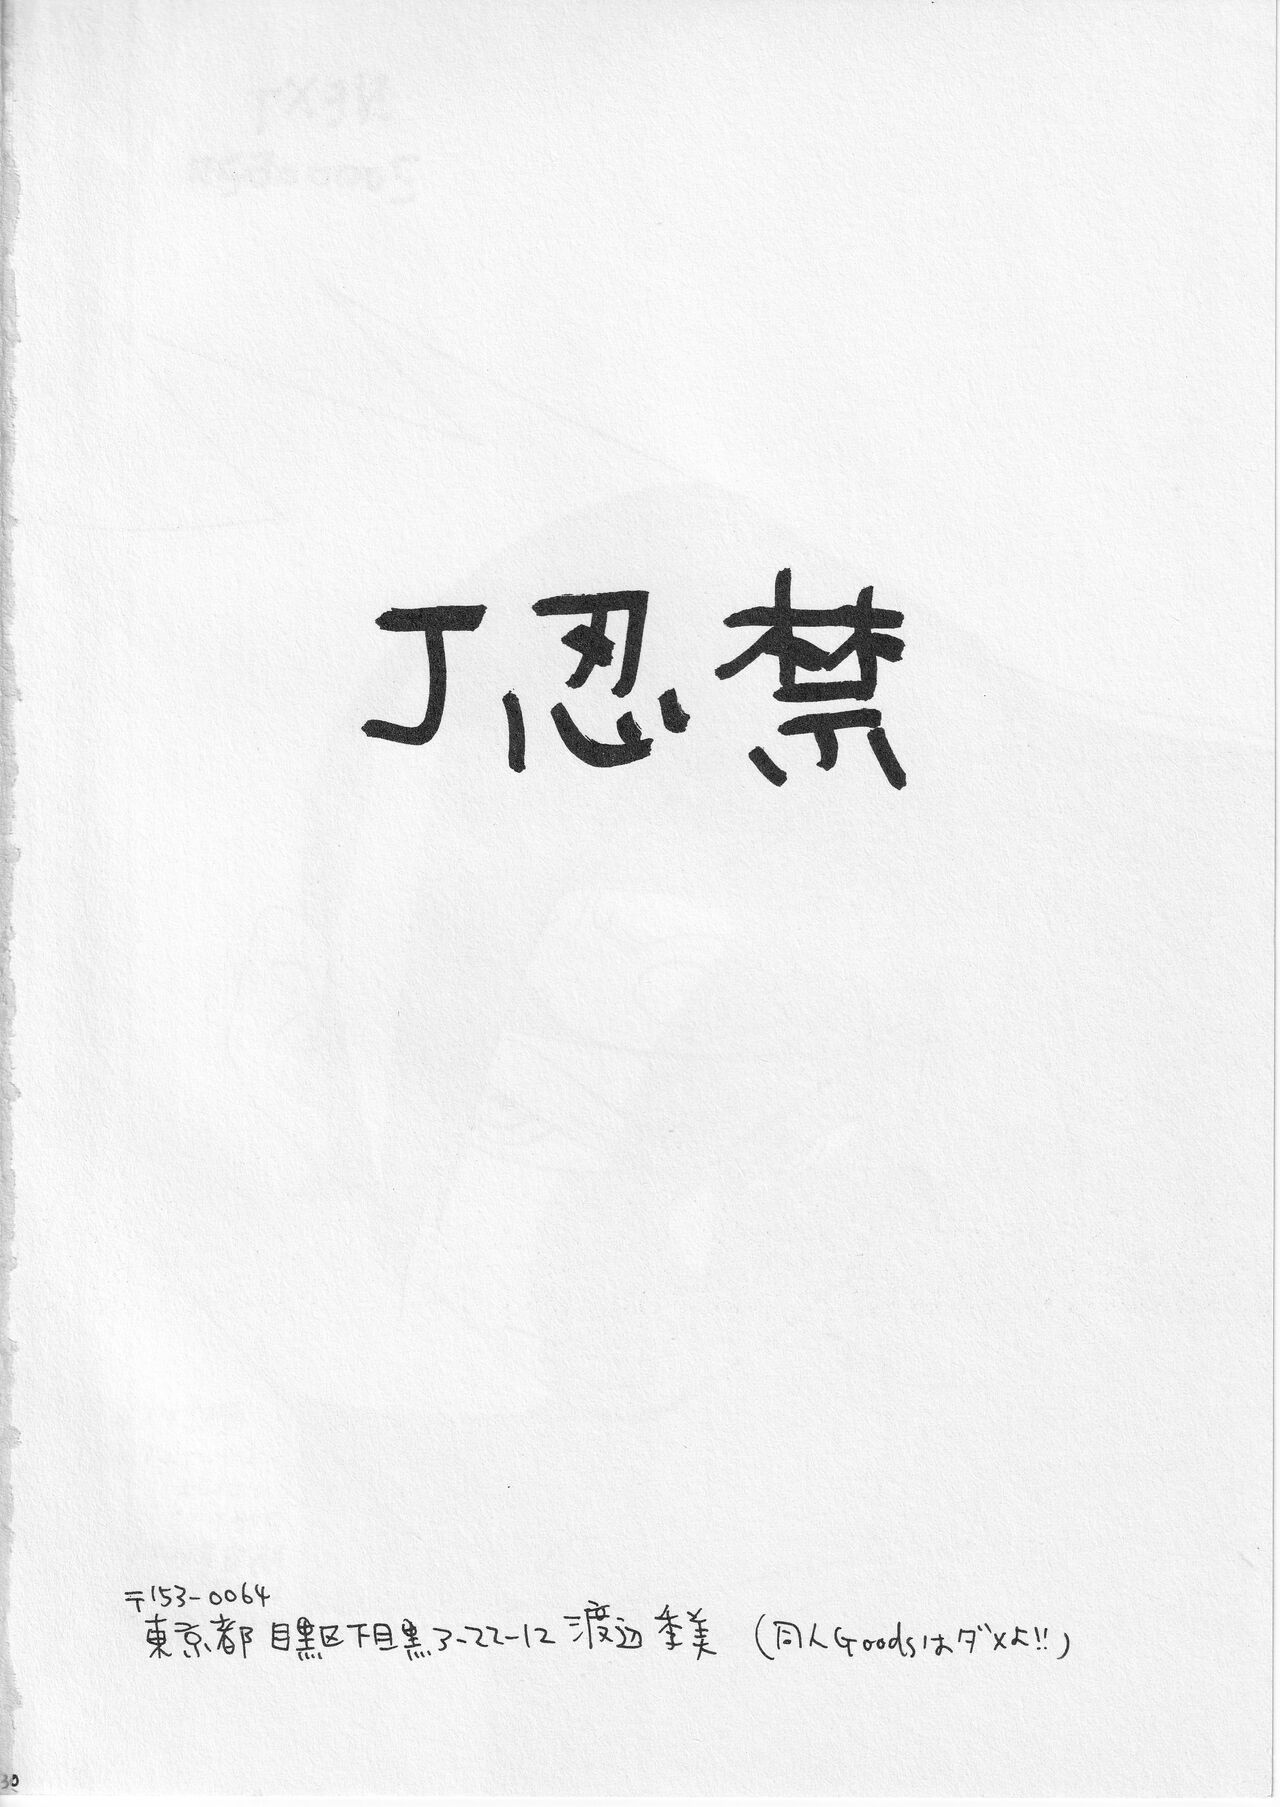 J忍禁
〒153-0064
東京都 目黒区下目黒3-22-12 渡辺 季美 (同人Goodsはダメよ!!)
30